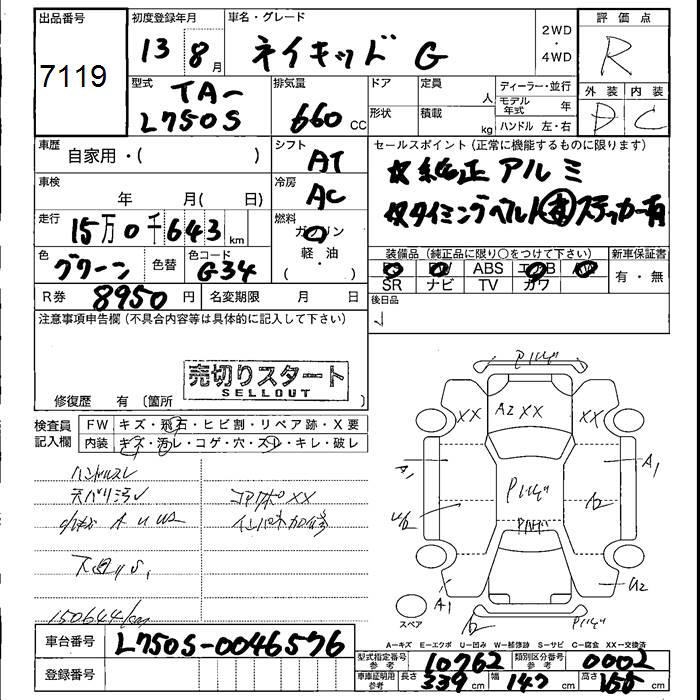 出品番号 初度登録年月 車名・グレード 2WD・4WD 評価点
7119 13年 8月 ネイキッド G R
型式 TA-L750S 排気量 660cc
ドア 定員 人 ディーラー・並行
形状 積載 kg モデル年式 年
ハンドル 左・右
外装 内装
D C
車歴 自家用・( ) シフト AT
セールスポイント(正常に機能するものに限ります)
☆純正アルミ
☆タイミングベルト ステッカー有
車検 年 月( 日) 冷房 AC
走行 15万0千643km 燃料 ガソリン 軽・油 ( )
色 グリーン 色替 色コード G34
装備品(純正品に限り○をつけて下さい) 新車保証書
ABS
SR ナビ TV カワ 有・無
R券 8950円 名変期限 月 日
後日品
注意事項申告欄(不具合内容等は具体的に記入して下さい)
売切りスタート
SELLOUT
修復歴 有(箇所 )
検査員記入欄 FW キズ・飛石・ヒビ割・リペア跡・X要
内装 キズ・汚レ・コゲ・穴・スレ・キレ・破レ
ハンドルスレ
天バリ汚レ コアサポXX
A U U2 インパネ加修
下廻りS1
150644km
XX A2 XX XX
A1 A1
U2
A1
スペア
A-キズ E-エクボ U-凹み W-補修跡 S-サビ C-腐食 XX-交換済
車台番号 L750S-0046576
登録番号
型式指定番号 参考 10762 類別区分番号 参考 0002
車庫証明用 参考 長さ 339cm 幅 147cm 高さ 155cm